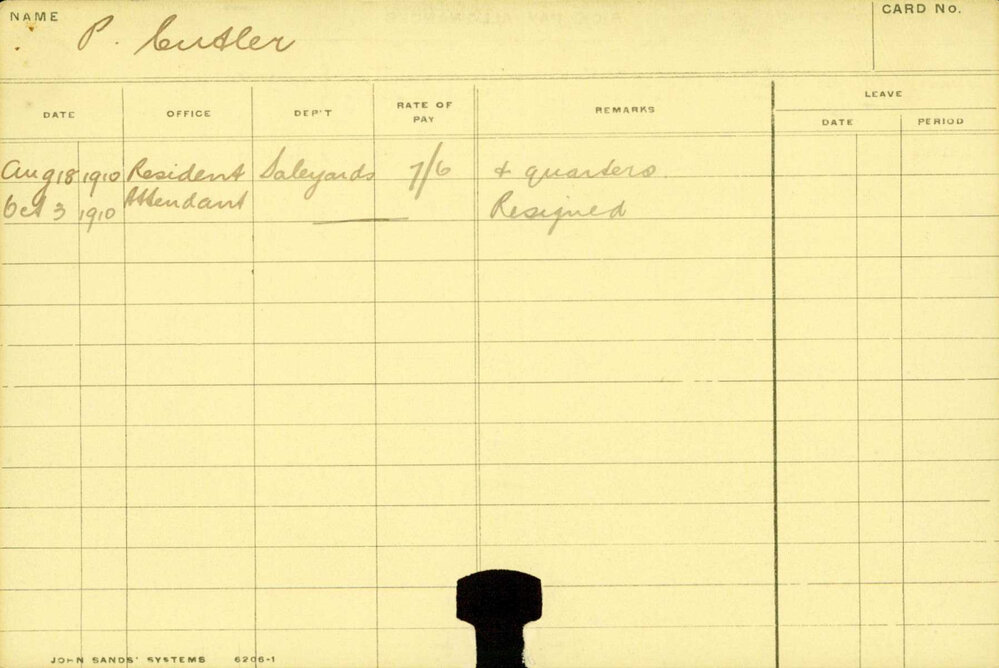 NAME
P. Cutler
CARD No.
DATE OFFICE DEP'T RATE OF PAY REMARKS LEAVE
DATE PERIOD
Aug 18 1910 Resident Saleyards 7/6 + quarters.
Oct 3 1910 Attendant Resigned
JOHN SANDS' SYSTEMS 6206-1